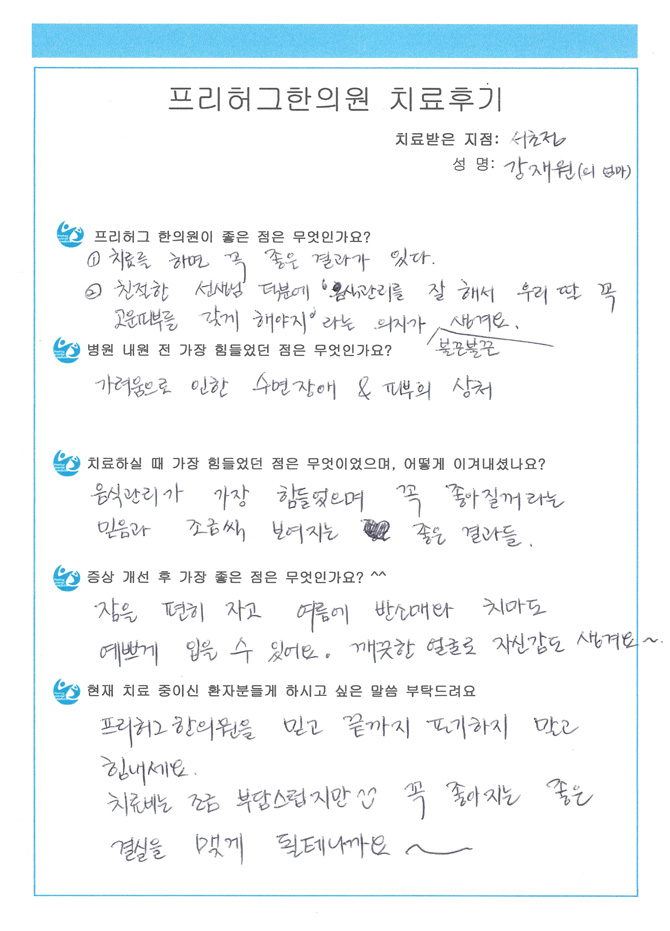 프리허그한의원 치료후기
치료받은 지점: 서초점
성 명: 강재원(의 엄마)
프리허그 한의원이 좋은 점은 무엇인가요?
① 치료를 하면 꼭 좋은 결과가 있다.
② 친절한 선생님 덕분에 '음식관리를 잘 해서 우리 딸 꼭
고운피부를 갖게 해야지'라는 의지가 생겨요.
불끈불끈
병원 내원 전 가장 힘들었던 점은 무엇인가요?
가려움으로 인한 수면장애 & 피부의 상처
치료하실 때 가장 힘들었던 점은 무엇이었으며, 어떻게 이겨내셨나요?
음식관리가 가장 힘들었으며 꼭 좋아질꺼라는
믿음과 조금씩 보여지는 좋은 결과들.
증상 개선 후 가장 좋은 점은 무엇인가요? ^^
잠을 편히 자고 여름에 반소매와 치마도
예쁘게 입을 수 있어요. 깨끗한 얼굴로 자신감도 생겨요~
현재 치료 중이신 환자분들게 하시고 싶은 말씀 부탁드려요
프리허그 한의원을 믿고 끝까지 포기하지 말고
힘내세요.
치료비는 조금 부담스럽지만 꼭 좋아지는 좋은
결실을 맺게 될테니까요~